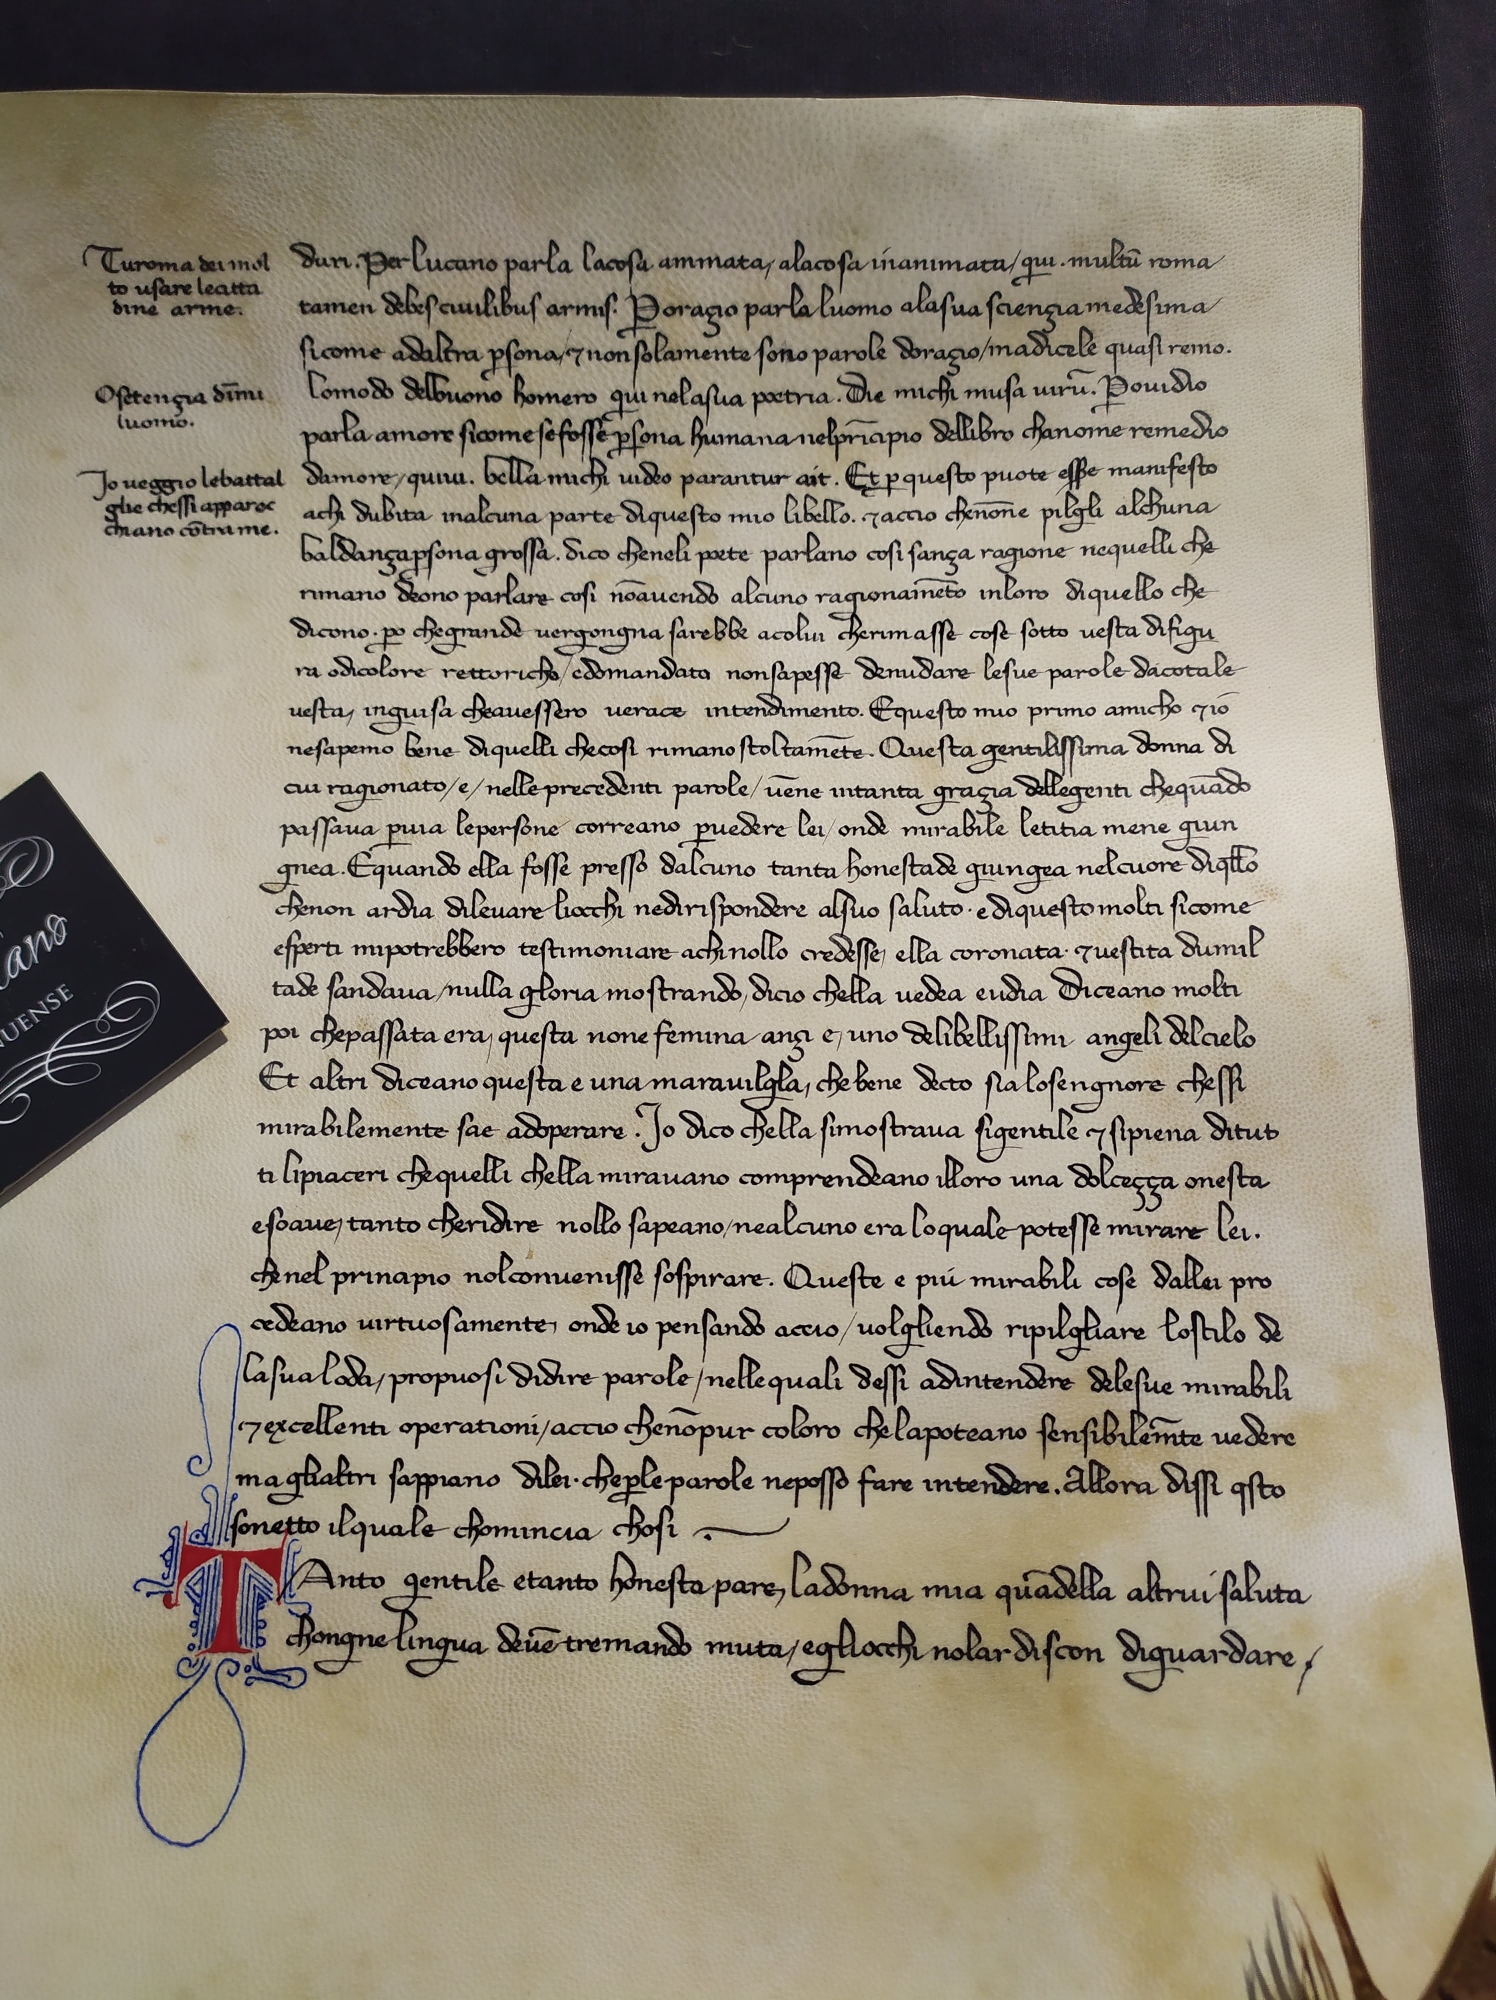 Turoma dei mol
to usare lecitta
dine arme.
Osetença dimī
luomo.
Jo veggio lebattal
glie chessi apparec
chiano cōtra me.
duri. Per lucano parla lacosa animata, alacosa inanimata, qui. multū roma
tamen debes civilibus armis. Poraçio parla luomo alasua sciença medesima
sicome adaltra psona, ⁊ non solamente sono parole doraçio, madicele quasi remo.
lomodo delbuono homero qui nelasua poetria. Die michi musa virū. Povidio
parla amore sicome sefosse psona humana nelprincipio dellibro chanome remedio
damore, quivi. bella michi video parantur ait. Et p questo puote esse manifesto
achi dubita inalcuna parte diquesto mio libello. ⁊ accio chenōne pilgli alchuna
baldança psona grossa. dico cheneli poete parlano cosi sança ragione nequelli che
rimano deono parlare cosi nōavendo alcuno ragionamēto inloro di quello che
dicono. po chegrande vergongna sarebbe acolui cherimasse cose sotto vesta difigu
ra odicolore rettoricho, edomandato nonsapesse denudare lesue parole dacotale
vesta, inguisa cheavessero verace intendimento. Equesto mio primo amicho ⁊ io
nesapemo bene diquelli checosi rimano stoltamēte. Questa gentilissima donna di
cui ragionato, e, nelle precedenti parole, vēne intanta graçia dellegenti chequādo
passava pvia lepersone correano pvedere lei, onde mirabile letitia mene giun
gnea. Equando ella fosse presso dalcuno tanta honestade giungea nelcuore diqllo
chenon ardia dilevare liocchi nedirispondere alsuo saluto. e diquesto molti sicome
esperti mipotrebbero testimoniare achi nollo credesse, ella coronata. ⁊ vestita dumil
tade sandava, nulla gloria mostrando, dicio chella vedea eudia Diceano molti
poi chepassata era, questa none femina ançi e, uno delibellissimi angeli delcielo
Et altri diceano questa e una maravilgla, che bene decto sia losengnore chessi
mirabilemente sae adoperare. Jo dico chella simostrava sigentile ⁊ sipiena ditut
ti lipiaceri chequelli chella miravano comprendeano illoro una dolceçça onesta
esoave, tanto cheridire nollo sapeano, nealcuno era loquale potesse mirare lei.
chenel principio nolconvenisse sospirare. Queste e piu mirabili cose dallei pro
cedeano virtuosamente, onde io pensando accio, volgliendo ripilgliare lostilo de
lasua loda, propuosi didire parole, nellequali dessi adintendere delesue mirabili
⁊ excellenti operationi, accio chenōpur coloro chelapoteano sensibilemēte vedere
ma glialtri sappiano dilei. cheple parole neposso fare intendere. Allora dissi qsto
sonetto ilquale chomincia chosi
TAnto gentile etanto honesta pare, ladonna mia quādella altrui saluta
chongne lingua devē tremando muta, egliocchi nolardiscon diguardare,
iano
NUENSE